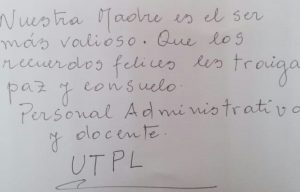 Nuestra Madre es el ser
más valioso. Que los
recuerdos felices les traiga
paz y consuelo.
Personal Administrativo
y docente.
UTPL